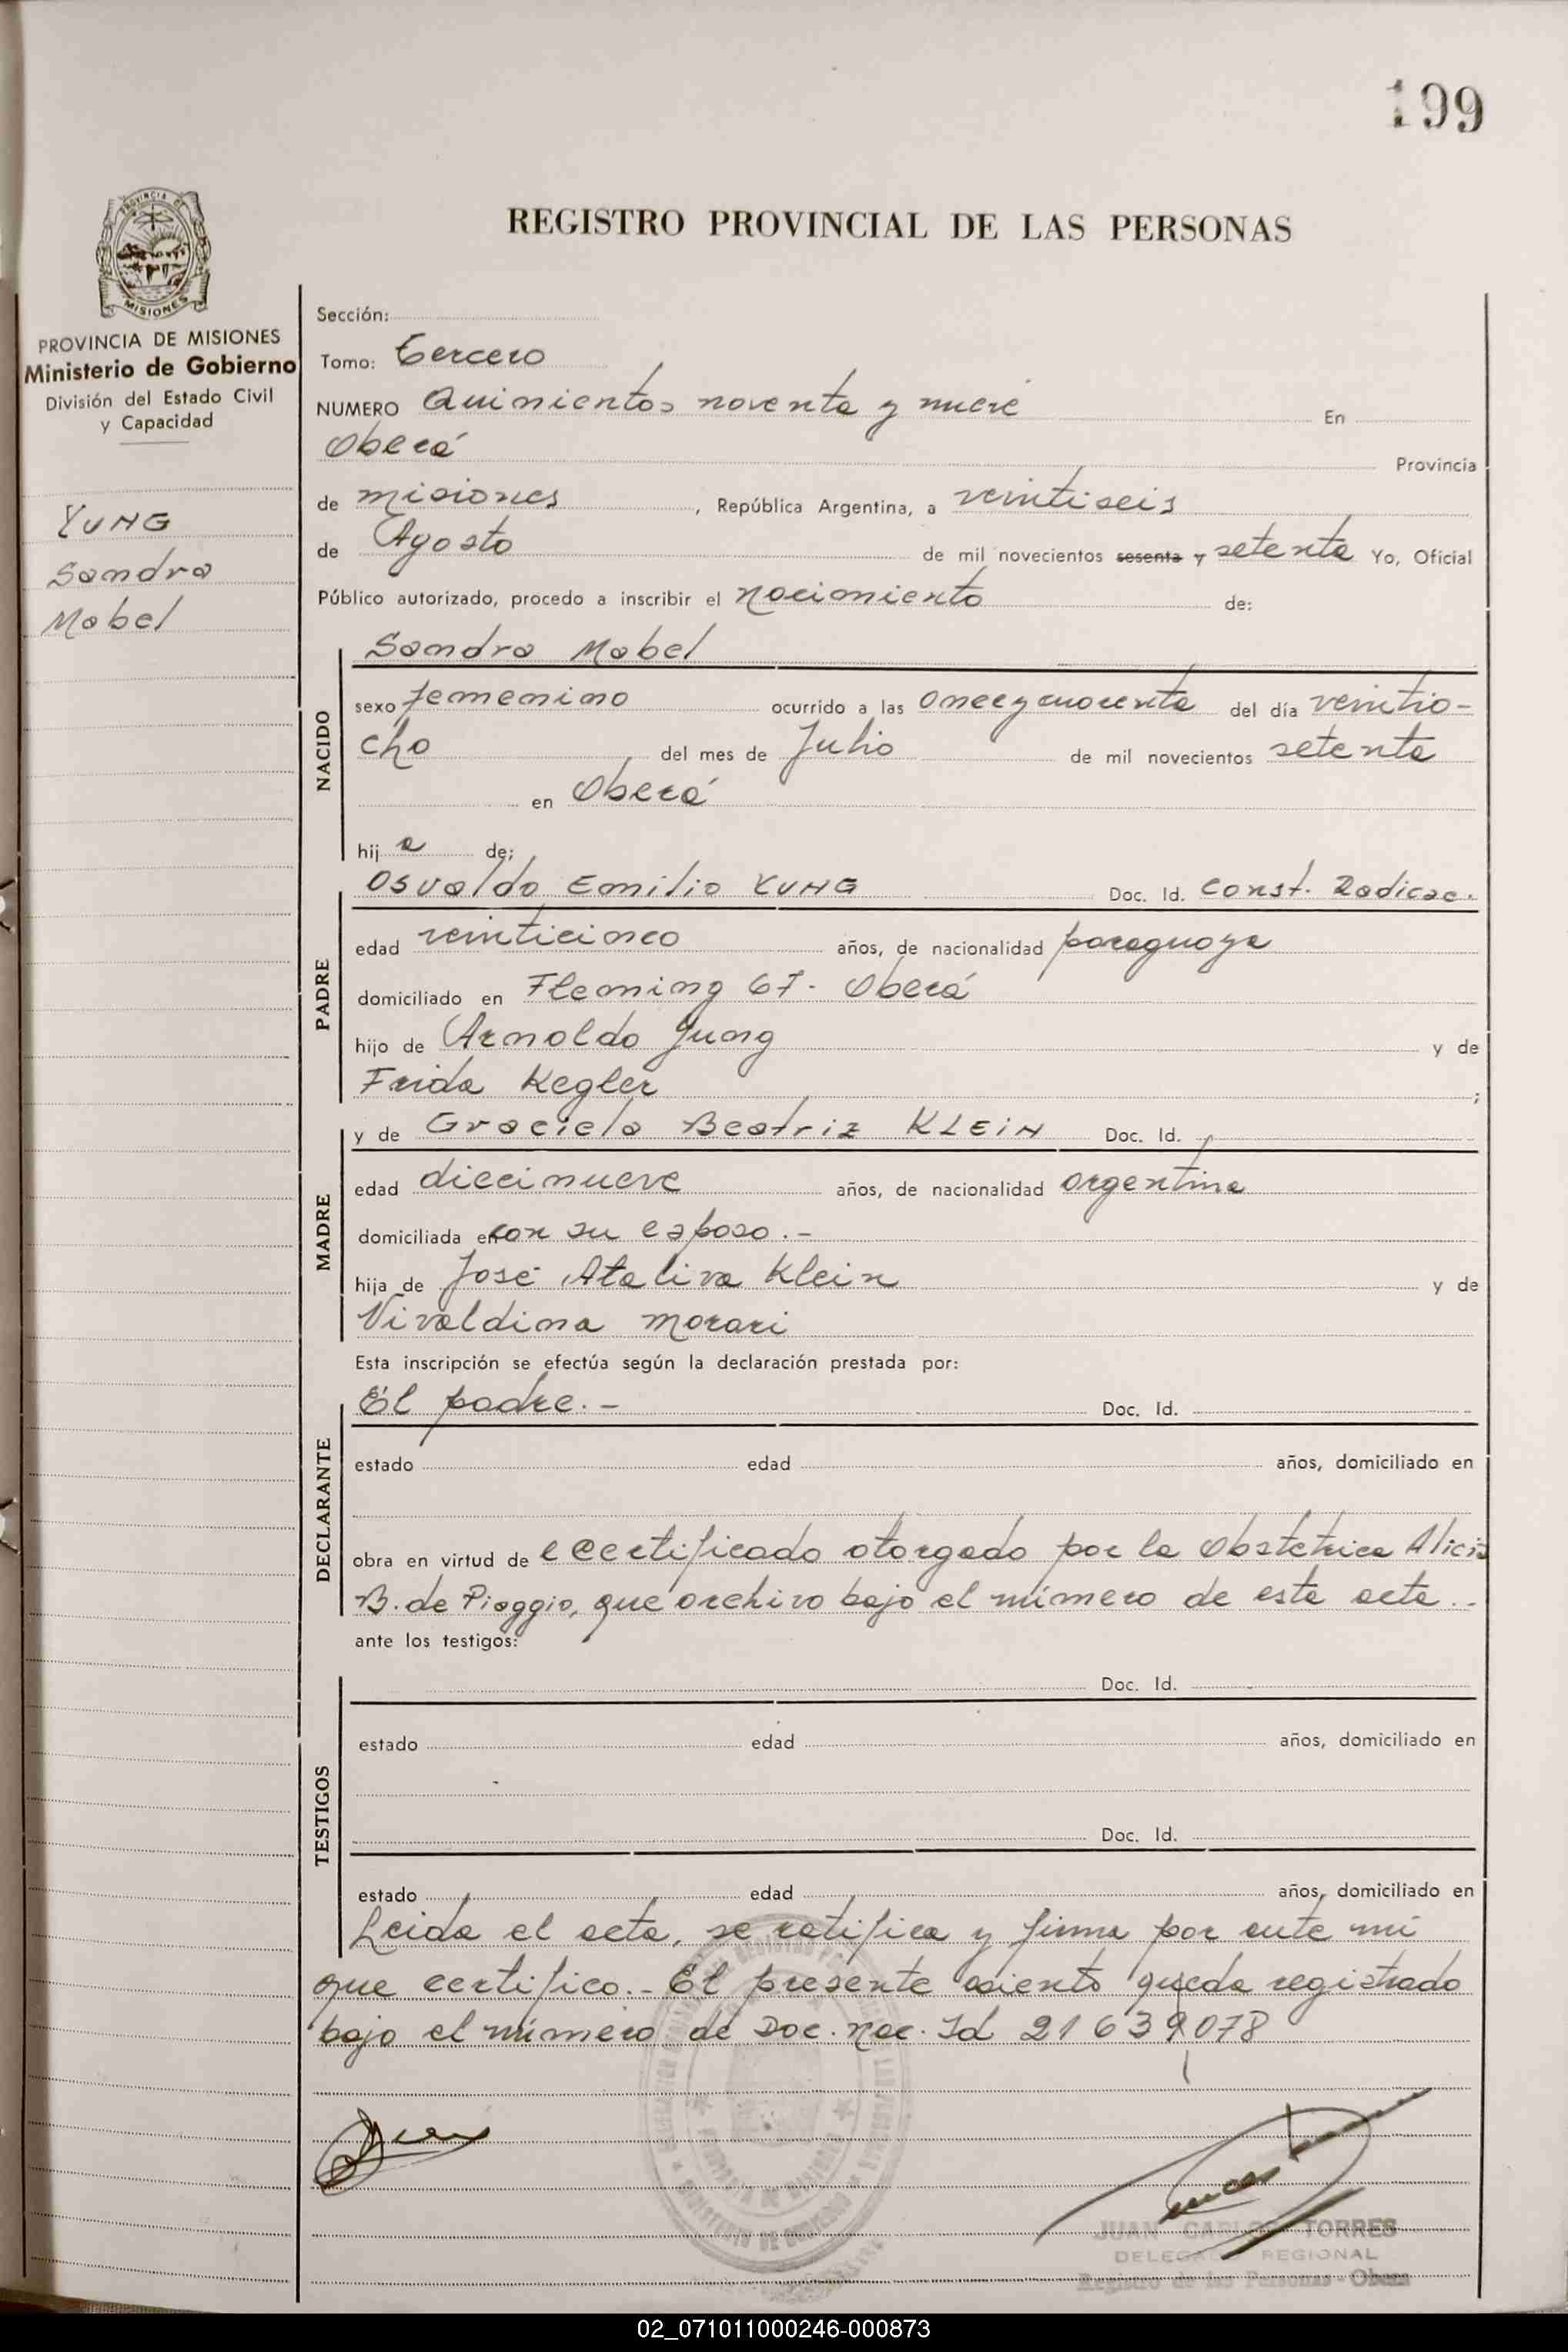 199
REGISTRO PROVINCIAL DE LAS PERSONAS
PROVINCIA DE
MISIONES
PROVINCIA DE MISIONES
Ministerio de Gobierno
División del Estado Civil
y Capacidad
YUNG
Sandra
Mabel
Sección:
Tomo: Tercero
NUMERO Quinientos noventa y nueve En
Oberá Provincia
de misiones, República Argentina, a veintiseis
de Agosto de mil novecientos sesenta y setenta Yo, Oficial
Público autorizado, procedo a inscribir el nacimiento de:
NACIDO
Sandra Mabel
sexo femenino ocurrido a las once y cuarenta del día veintio-
cho del mes de Julio de mil novecientos setenta
en Oberá
hij a de;
PADRE
Osvaldo Emilio YUNG Doc. Id. Const. Radicac.
edad veinticinco años, de nacionalidad paraguaya
domiciliado en Fleming 67 - Oberá
hijo de Arnoldo Jung y de
Frida Kegler ;
MADRE
y de Graciela Beatriz KLEIN Doc. Id.
edad diecinueve años, de nacionalidad argentina
domiciliada en con su esposo.-
hija de José Ataliva Klein y de
Vivaldina Morari
Esta inscripción se efectúa según la declaración prestada por:
DECLARANTE
El padre.- Doc. Id.
estado edad años, domiciliado en
obra en virtud de certificado otorgado por la Obstetrica Alicia
B. de Piaggio, que archivo bajo el número de esta acta.-
ante los testigos:
TESTIGOS
Doc. Id.
estado edad años, domiciliado en
Doc. Id.
estado edad años, domiciliado en
Leida el acta, se ratifica y firma por ante mi
que certifico.- El presente asiento queda registrado
bajo el número de Doc. Nac. Id 21639078
JUAN CARLOS TORRES
DELEGADO REGIONAL
Registro de las Personas - Obera
02_071011000246-000873